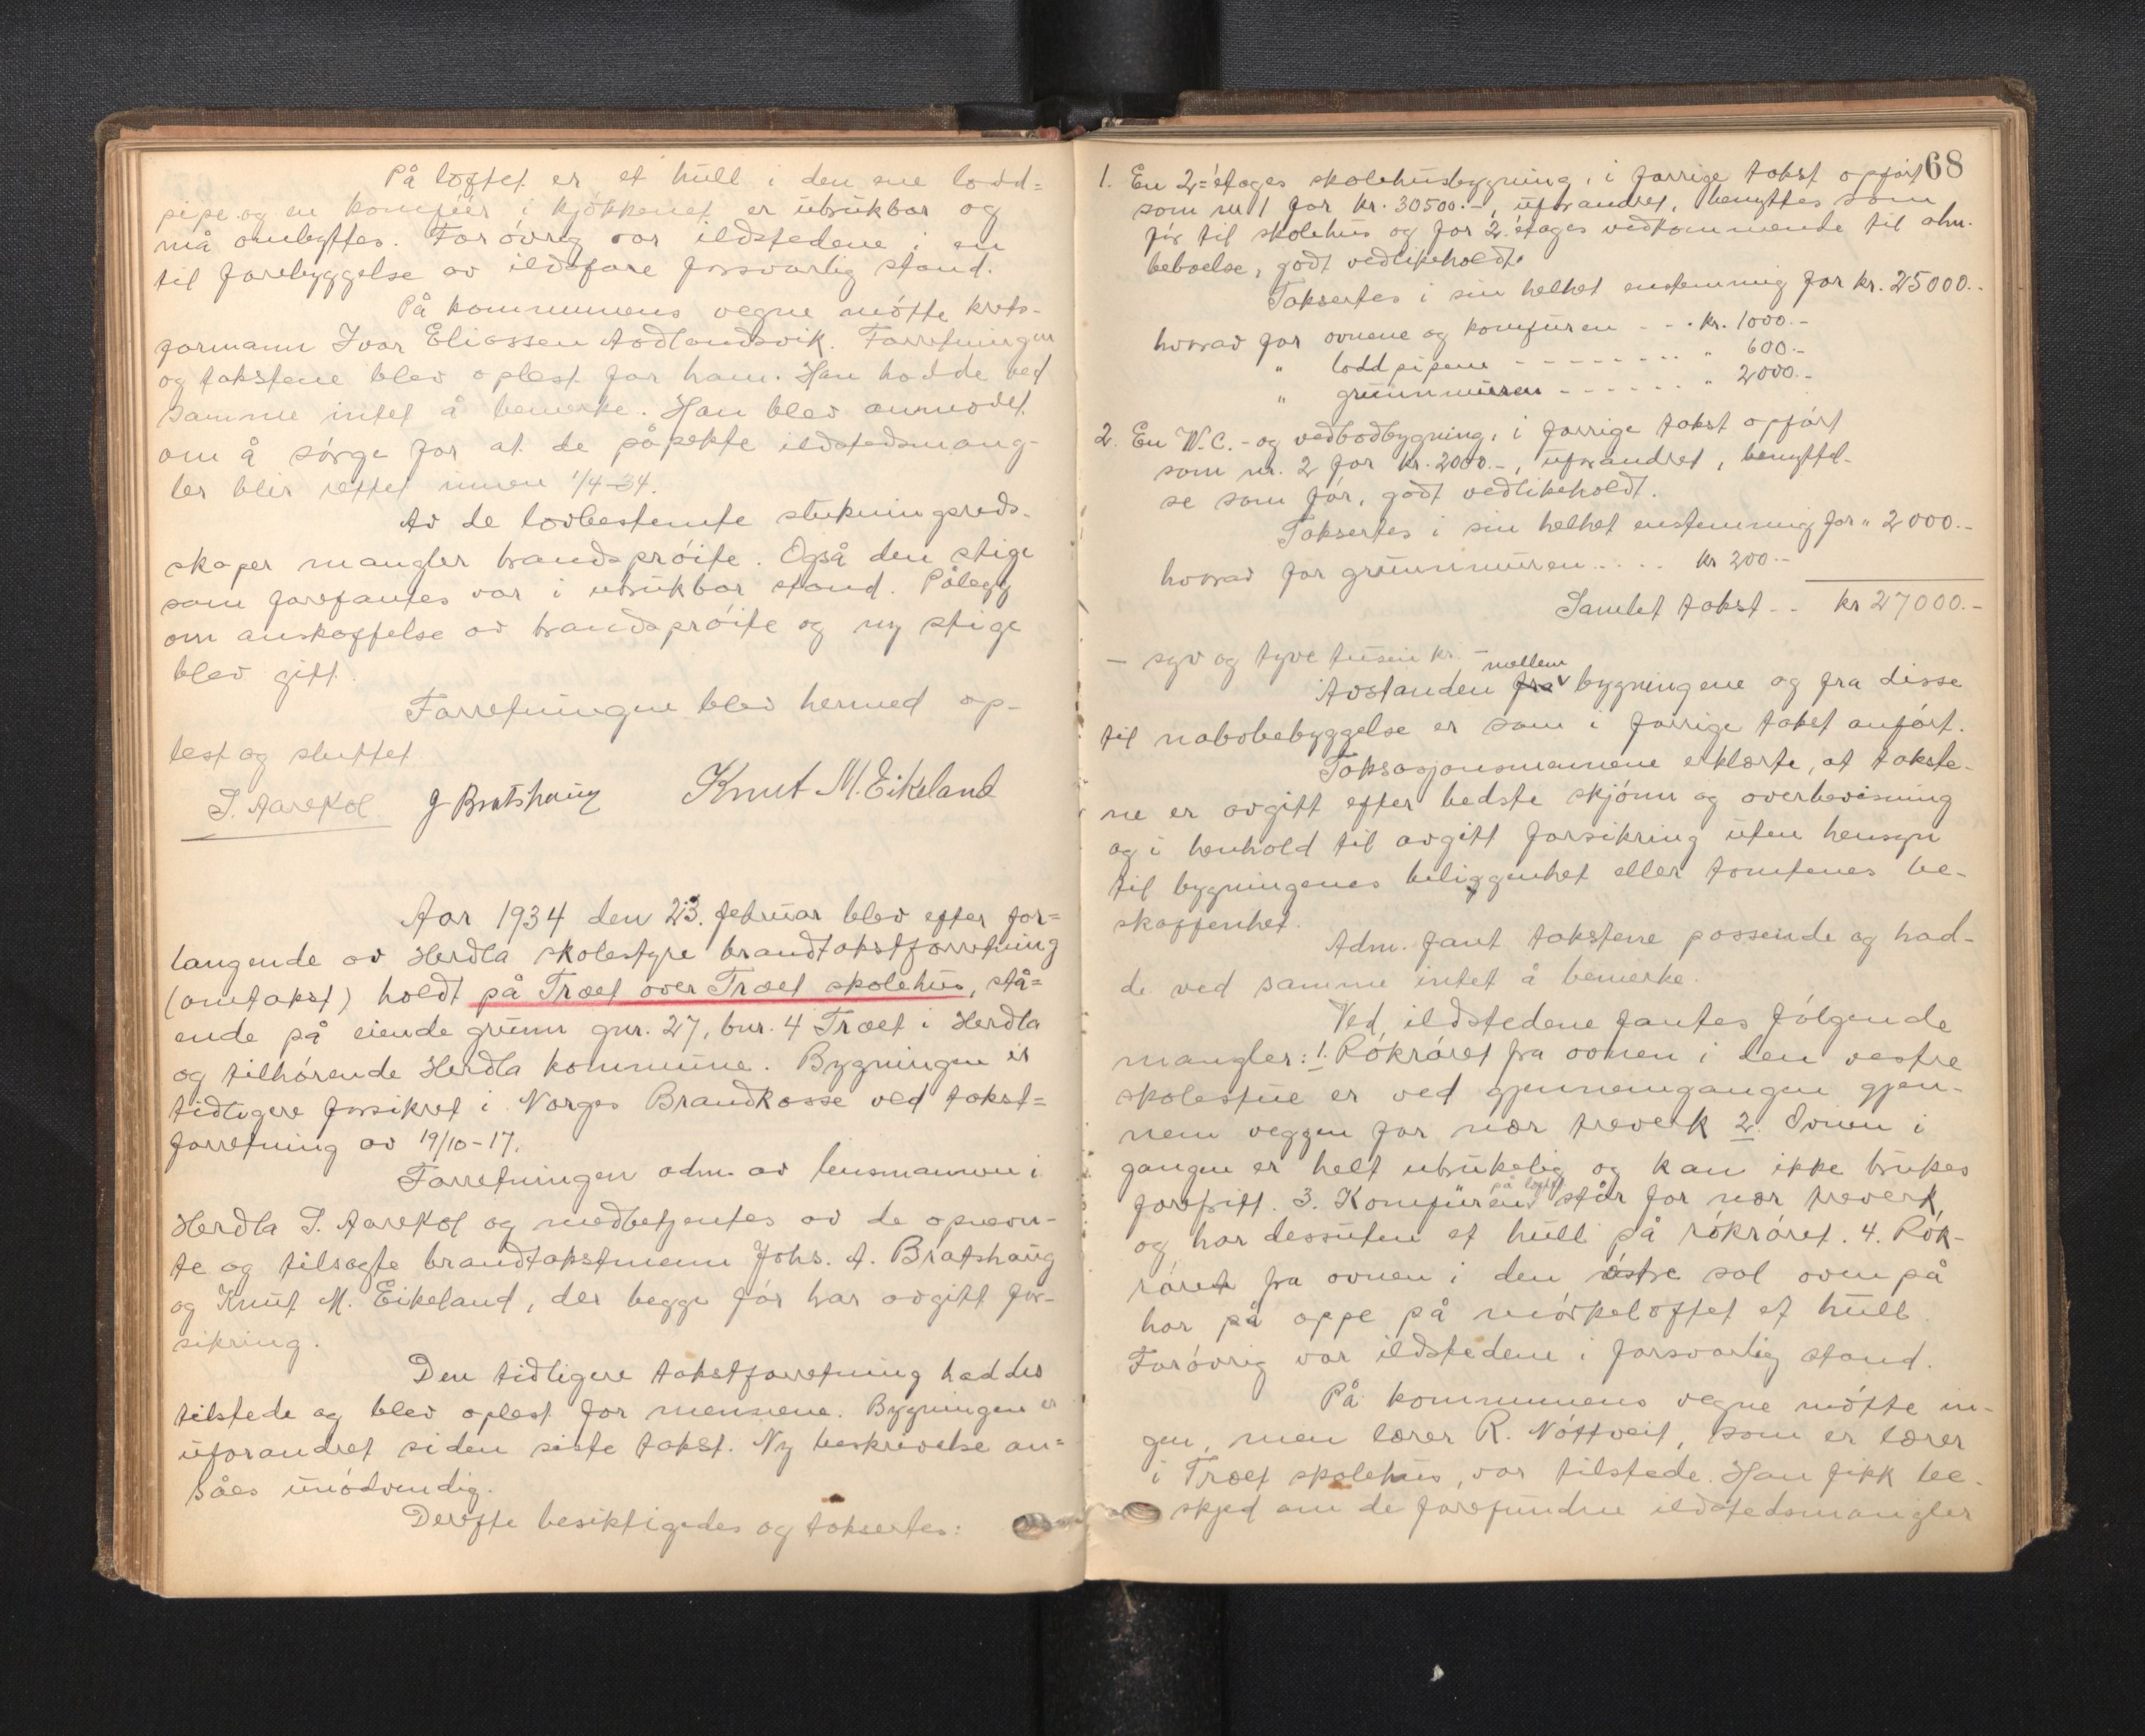 På loftet er et hull i den ene lodd=
pipe og en komfür i kjökkenet er ubrükbar og
må ombyttes. Foröverig var ildstedene i en
til forebyggelse av ildsfare forsvarlig stand.
På kommunens vegne mötte krets-
formann Ivar Eliassen Aadlandsvik. Forretningen
og takstene blev oplest for ham. Han hadde ved
samme intet å bemerke. Han blev anmodet
om å sörge for at de påpekte ildstedsmang-
ler blir rettet innen 1/4-34.
Av de lovbestemte slukningsreds-
skaper mangler brandspröite. Også den stige
som forefantes var i ubrükbar stand. Pålegg
om anskaffelse av brandspröite og ny stige
blev gitt.
Forretningen blev hermed op-
lest og sluttet.
J. Aarekol. J Bratshaug Knut M. Eikeland
Aar 1934 den 23. februar blev efter for=
langende av Herdla skolestyre brandtakstforretning
(omtakst) holdt på Træet over Træet skolehüs, stå=
ende på eiende grunn gnr. 27, bnr. 4 Træet i Herdla
og tilhörende Herdla kommune. Bygningen er
tidligere forsikret i Norges Brandkasse ved takst=
forretning av 19/10-17.
Forretningen adm. av lensmannen i
Herdla J. Aarekol og medbetjentes av de opnevn-
te og tilsagte brandtakstmenn Johs. A. Bratshaug
og Knut M. Eikeland, der begge för har avgitt for-
sikring.
Den tidligere takstforretning haddes
tilstede og blev oplest for mennene. Bygningen er
uforandret siden siste takst. Ny beskrivelse an=
såes unödvendig.
Derefte besiktigedes og taksertes:
68
1. En 2=etages skolehusbygning, i forrige takst opfört
som nr 1 for kr. 30500.-, uforandret, benyttes som
för til skolehus og for 2. etages vedkommende til alm.
beboelse, godt vedlikeholdt.
Taksertes i sin helhet enstemmig for kr. 25000.-
hvorav for ovnene og komfüren - - - kr. 1000.-
" loddpipene - - - - - - - - " 600.-
" grunnmüren - - - - - - " 2000.-
2. En W.C.- og vedbodbygning, i forrige takst opfört
som nr. 2 for kr. 2000.-, uforandret, benyttel-
se som för, godt vedlikeholdt.
Taksertes i sin helhet enstemmig for " 2000.-
hvorav for grunnmüren..... kr 200.-
Samlet takst - - kr 27000.-
- syv og tyve tusen kr. -
Avstanden fra mellem bygningene og fra disse
til nabobebyggelse er som i forrige takst anfört.
Taksasjonsmennene erklærte, at takste-
ne er avgitt efter bedste skjönn og overbevisning
og i henhold til avgitt forsikring uten hensyn
til bygningenes beliggenhet eller tomtenes be-
skaffenhet.
Adm. fant takstene passende og had-
de ved samme intet å bemerke.
Ved ildstedene fantes fölgende
mangler: 1. Rökröret fra ovnen i den vestre
skolestue er ved gjennemgangen gjen-
nem veggen for nær treverk 2. Ovnen i
gangen er helt ubrukelig og kan ikke brukes
forefritt. 3. Komfüren på loftet står for nær treverk
og har dessuten et hull på rökröret. 4. Rök-
röret fra ovnen i den östre sal ovenpå
har på oppe på mörkeloftet et hull.
Foröverig var ildstedene i forsvarlig stand.
På kommunens vegne mötte in-
gen, men lærer R. Nöttveit, som er lærer
i Træet skolehus, var tilstede. Han fikk be-
skjed om de forefundne ildstedsmangler